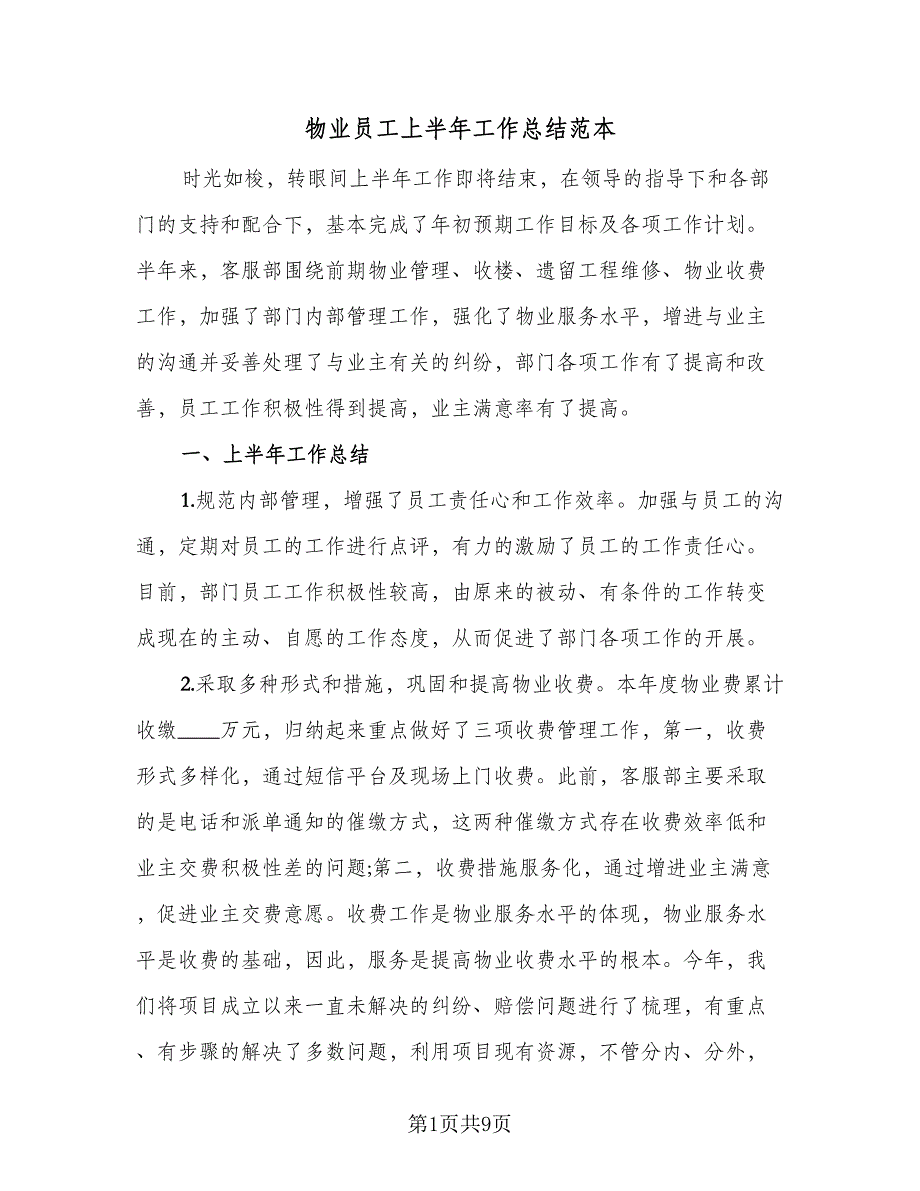 物业员工上半年工作总结范本
时光如梭，转眼间上半年工作即将结束，在领导的指导下和各部
门的支持和配合下，基本完成了年初预期工作目标及各项工作计划。
半年来，客服部围绕前期物业管理、收楼、遗留工程维修、物业收费
工作，加强了部门内部管理工作，强化了物业服务水平，增进与业主
的沟通并妥善处理了与业主有关的纠纷，部门各项工作有了提高和改
善，员工工作积极性得到提高，业主满意率有了提高。
一、上半年工作总结
1.规范内部管理，增强了员工责任心和工作效率。加强与员工的沟
通，定期对员工的工作进行点评，有力的激励了员工的工作责任心。
目前，部门员工工作积极性较高，由原来的被动、有条件的工作转变
成现在的主动、自愿的工作态度，从而促进了部门各项工作的开展。
2.采取多种形式和措施，巩固和提高物业收费。本年度物业费累计
收缴____万元，归纳起来重点做好了三项收费管理工作，第一，收费
形式多样化，通过短信平台及现场上门收费。此前，客服部主要采取
的是电话和派单通知的催缴方式，这两种催缴方式存在收费效率低和
业主交费积极性差的问题;第二，收费措施服务化，通过增进业主满意
，促进业主交费意愿。收费工作是物业服务水平的体现，物业服务水
平是收费的基础，因此，服务是提高物业收费水平的根本。今年，我
们将项目成立以来一直未解决的纠纷、赔偿问题进行了梳理，有重点
、有步骤的解决了多数问题，利用项目现有资源，不管分内、分外，
第1页共9页